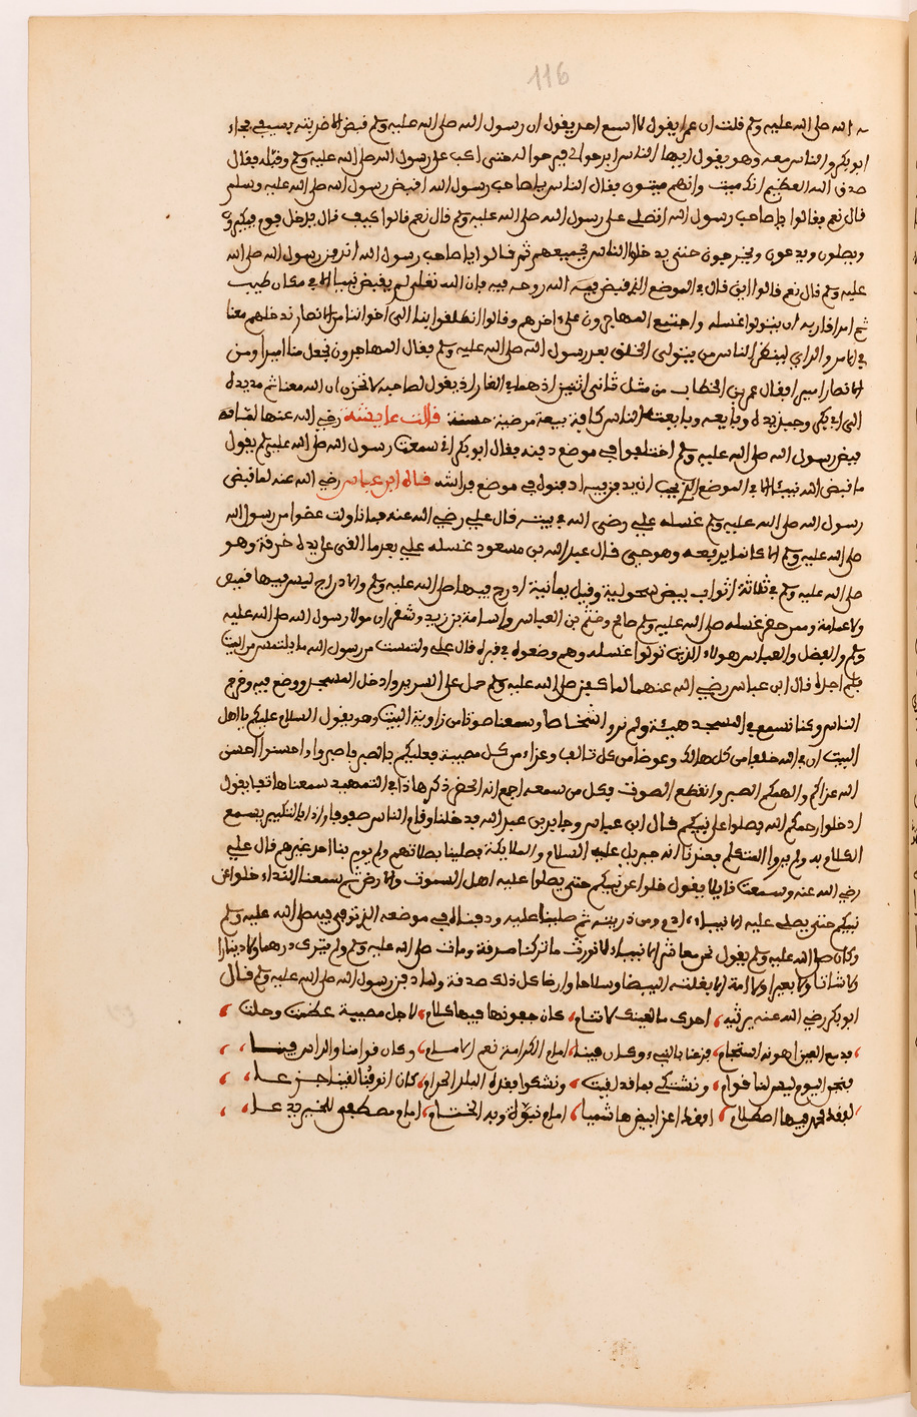 116
الله صلى الله عليه وسلم قلت ان عمر يقول لا اسمع احد يقول ان رسول الله صلى الله عليه وسلم قبض الا ضربته بسيفي فجاء
ابو بكر والناس معه وهو يقول ايها الناس افرجوا لي فرجوا له حتى اكب على رسول الله صلى الله عليه وسلم وقبله فقال
صدق الله العظيم انك ميت وانهم ميتون فقال الناس يا صاحب رسول الله اقبض رسول الله صلى الله عليه وسلم
قال نعم فقالوا يا صاحب رسول الله انصلي على رسول الله صلى الله عليه وسلم قال نعم قالوا كيف قال يدخل قوم فيكبرون
ويصلون ويدعون ويخرجون حتى يدخلوا الناس جميعهم ثم قالوا يا صاحب رسول الله اندفن رسول الله صلى الله
عليه وسلم قال نعم قالوا اين قال في الموضع الذي قبض فيه الله روحه فيه فان الله تعلى لم يقبض نبيا الا في مكان طيب
ثم امر اقاربه ان يتولوا غسله واجتمع المهاجرون على اخرهم وقالوا انطلقوا بنا الى اخواننا من الانصار ندخلهم معنا
في الامر والراي لينظر الناس من يتولى الخلق بعد رسول الله صلى الله عليه وسلم فقال المهاجرون نجعل منا اميرا ومن
الانصار امير فقال عمر بن الخطاب من مثل ثاني اثنين اذ هما في الغار اذ يقول لصاحبه لا تحزن ان الله معنا ثم مد يده
الى ابي بكر وجبذ يده وبايعه وبايعته الناس كافة بيعة مرضية حسنة قالت عايشة رضي الله عنها لما
قبض رسول الله صلى الله عليه وسلم اختلفوا في موضع دفنه فقال ابو بكر اني سمعت رسول الله صلى الله عليه وسلم يقول
ما قبض الله نبيا الا في الموضع الذي يجب ان يدفن فيه ادفنوه في موضع فراشه قال ابن عباس رضي الله عنه لما قبض
رسول الله صلى الله عليه وسلم غسله علي رضي الله في بيته قال علي رضي الله عنه فما تناولت عضوا من رسول الله
صلى الله عليه وسلم الا كانما يرفعه وهو حي قال عبد الله بن مسعود غسله علي بعد ما القى على يده خرقة وهو
صلى الله عليه وسلم في ثلاثة اثواب بيض سحولية وقيل يمانية ادرج فيها صلى الله عليه وسلم والادراج ليس فيها قميص
ولا عمامة وممن حضر غسله صلى الله عليه وسلم علي وقثم بن العباس واسامة بن زيد وشقران مولا رسول الله صلى الله عليه
وسلم والفضل والعباس هولاء الذين تولوا غسله وهم وضعوه في قبره قال علي ولتمست من رسول الله ما يلتمس من الميت
فلم اجده قال ابن عباس رضي الله عنهما لما كفن صلى الله عليه وسلم حمل على السرير وادخل المسجد ووضع فيه وخرج
الناس وكنا نسمع في المسجد هيبة ولم نرو اشخاصا وسمعنا صوتا من زاوية البيت وهو يقول السلام عليكم يا اهل
البيت ان في الله خلفا من كل هالك وعوضا من كل تالف وعزاء من كل مصيبة فعليكم بالصبر فاصبروا واحسنوا احسن
الله عزاكم والهمكم الصبر وانقطع الصوت فكل من سمعه اجمع انه الخضر ذكر هاذا في التمهيد سمعنا هاتفا يقول
ادخلوا رحمكم الله فصلوا على نبيكم قال ابن عباس وجابر بن عبد الله فدخلنا وقام الناس صفوفا واذا بالتكبير يسمع
الكلام به ولم يروا المتكلم فعرفنا انه جبريل عليه السلام والملايكة فصلينا بصلاتهم ولم يوم بنا احد غيرهم قال علي
رضي الله عنه وسمعت قايلا يقول خلوا عن نبيكم حتى يصلوا عليه اهل السموات والارض ثم سمعنا النداء خلوا عن
نبيكم حتى يصلى عليه الانبياء ادم ومن ذريته ثم صلينا عليه ودفناه في موضعه الذي توفي فيه صلى الله عليه وسلم
وكان صلى الله عليه وسلم يقول نحن معاشر الانبياء لا نورث ما تركنا صدقة ومات صلى الله عليه وسلم ولم يترك درهما ولا دينارا
ولا شاتا ولا بعيرا ولا امة الا بغلته البيضا وسلاحا وارضا كل ذلك صدقة ولما دفن رسول الله صلى الله عليه وسلم قال
ابو بكر رضي الله عنه يرثيه احدى ما لعينك لا تنام كان جفونها فيها كلام لاجل مصيبة عظمت وجلت
فدمع العين اهونه انسجام فجعنا بالنبي وكان فينا امام الكرامة نعم الامام وكان قوامنا والراس فينا
فنحن اليوم ليس لنا قوام ونشتكي بما قد لقيت ونشكوا فقده البلد الحرام كان انوفنا لقينا جزعا
لفقد محمد فيها اصطلام افقد اغر ابيض هاشميا امام نبوة وبه الختام امام مصطفى للخير يدعا